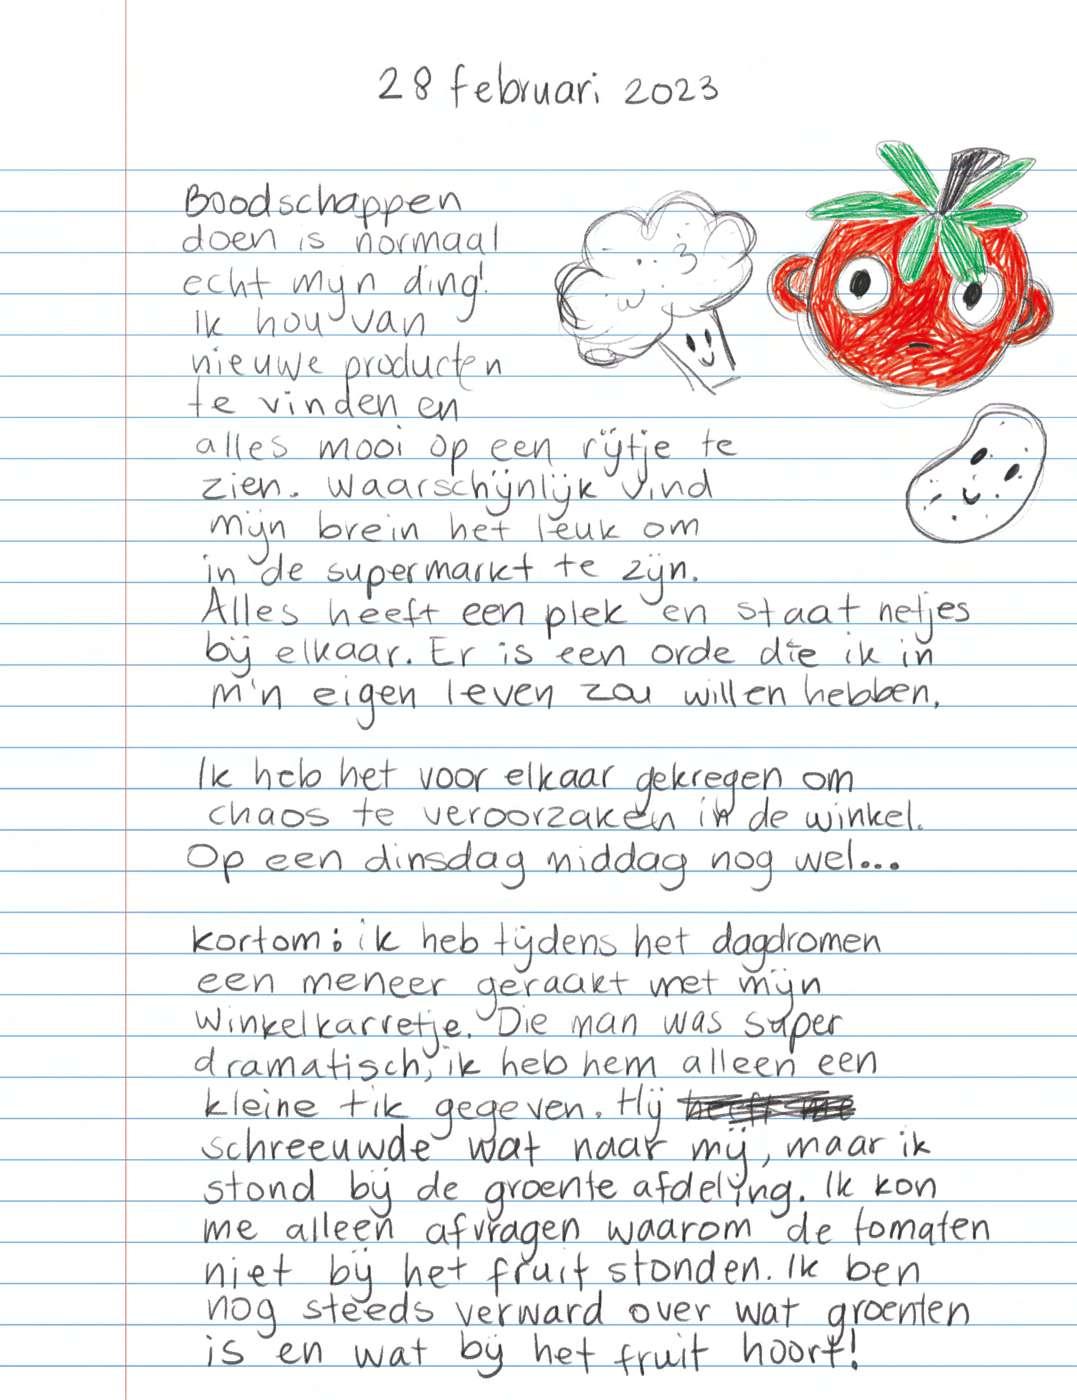 28 februari 2023
Boodschappen
doen is normaal
echt mijn ding!
Ik hou van
nieuwe producten
te vinden en
alles mooi op een rijtje te
zien. Waarschijnlijk vind
mijn brein het leuk om
in de supermarkt te zijn.
Alles heeft een plek en staat netjes
bij elkaar. Er is een orde die ik in
m'n eigen leven zou willen hebben.
Ik heb het voor elkaar gekregen om
chaos te veroorzaken in de winkel.
Op een dinsdag middag nog wel...
Kortom: ik heb tijdens het dagdromen
een meneer geraakt met mijn
winkelkarretje. Die man was super
dramatisch, ik heb hem alleen een
kleine tik gegeven. Hij
schreeuwde wat naar mij, maar ik
stond bij de groente afdelijng. Ik kon
me alleen afvragen waarom de tomaten
niet bij het fruit stonden. Ik ben
nog steeds verward over wat groenten
is en wat bij het fruit hoort!